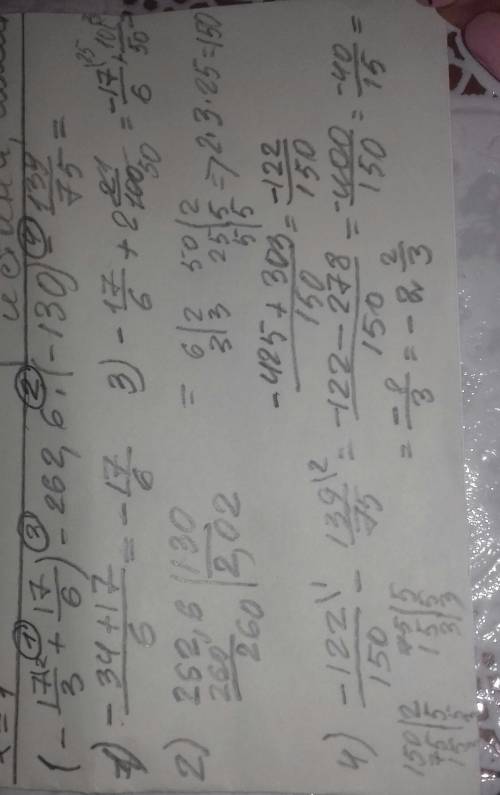 (-17/3 + 17/6) - 262,6 : (-130) - 139/75 =
1) (-34+17)/6 = -17/6
2) 262,6 | 130
260 | 2,02
260
3) -17/6 + 2 2/100 = -17/6 + 101/50 =
= 6|2 50|2
3|3 25|5 => 2·3·25=150
5|5
(-425+303)/150 = -122/150
4) -122/150 - 139/75 = (-122-278)/150 = -400/150 = -40/15 =
= -8/3 = -2 2/3
150|2 75|5
75|5 15|5
15|5 3|3